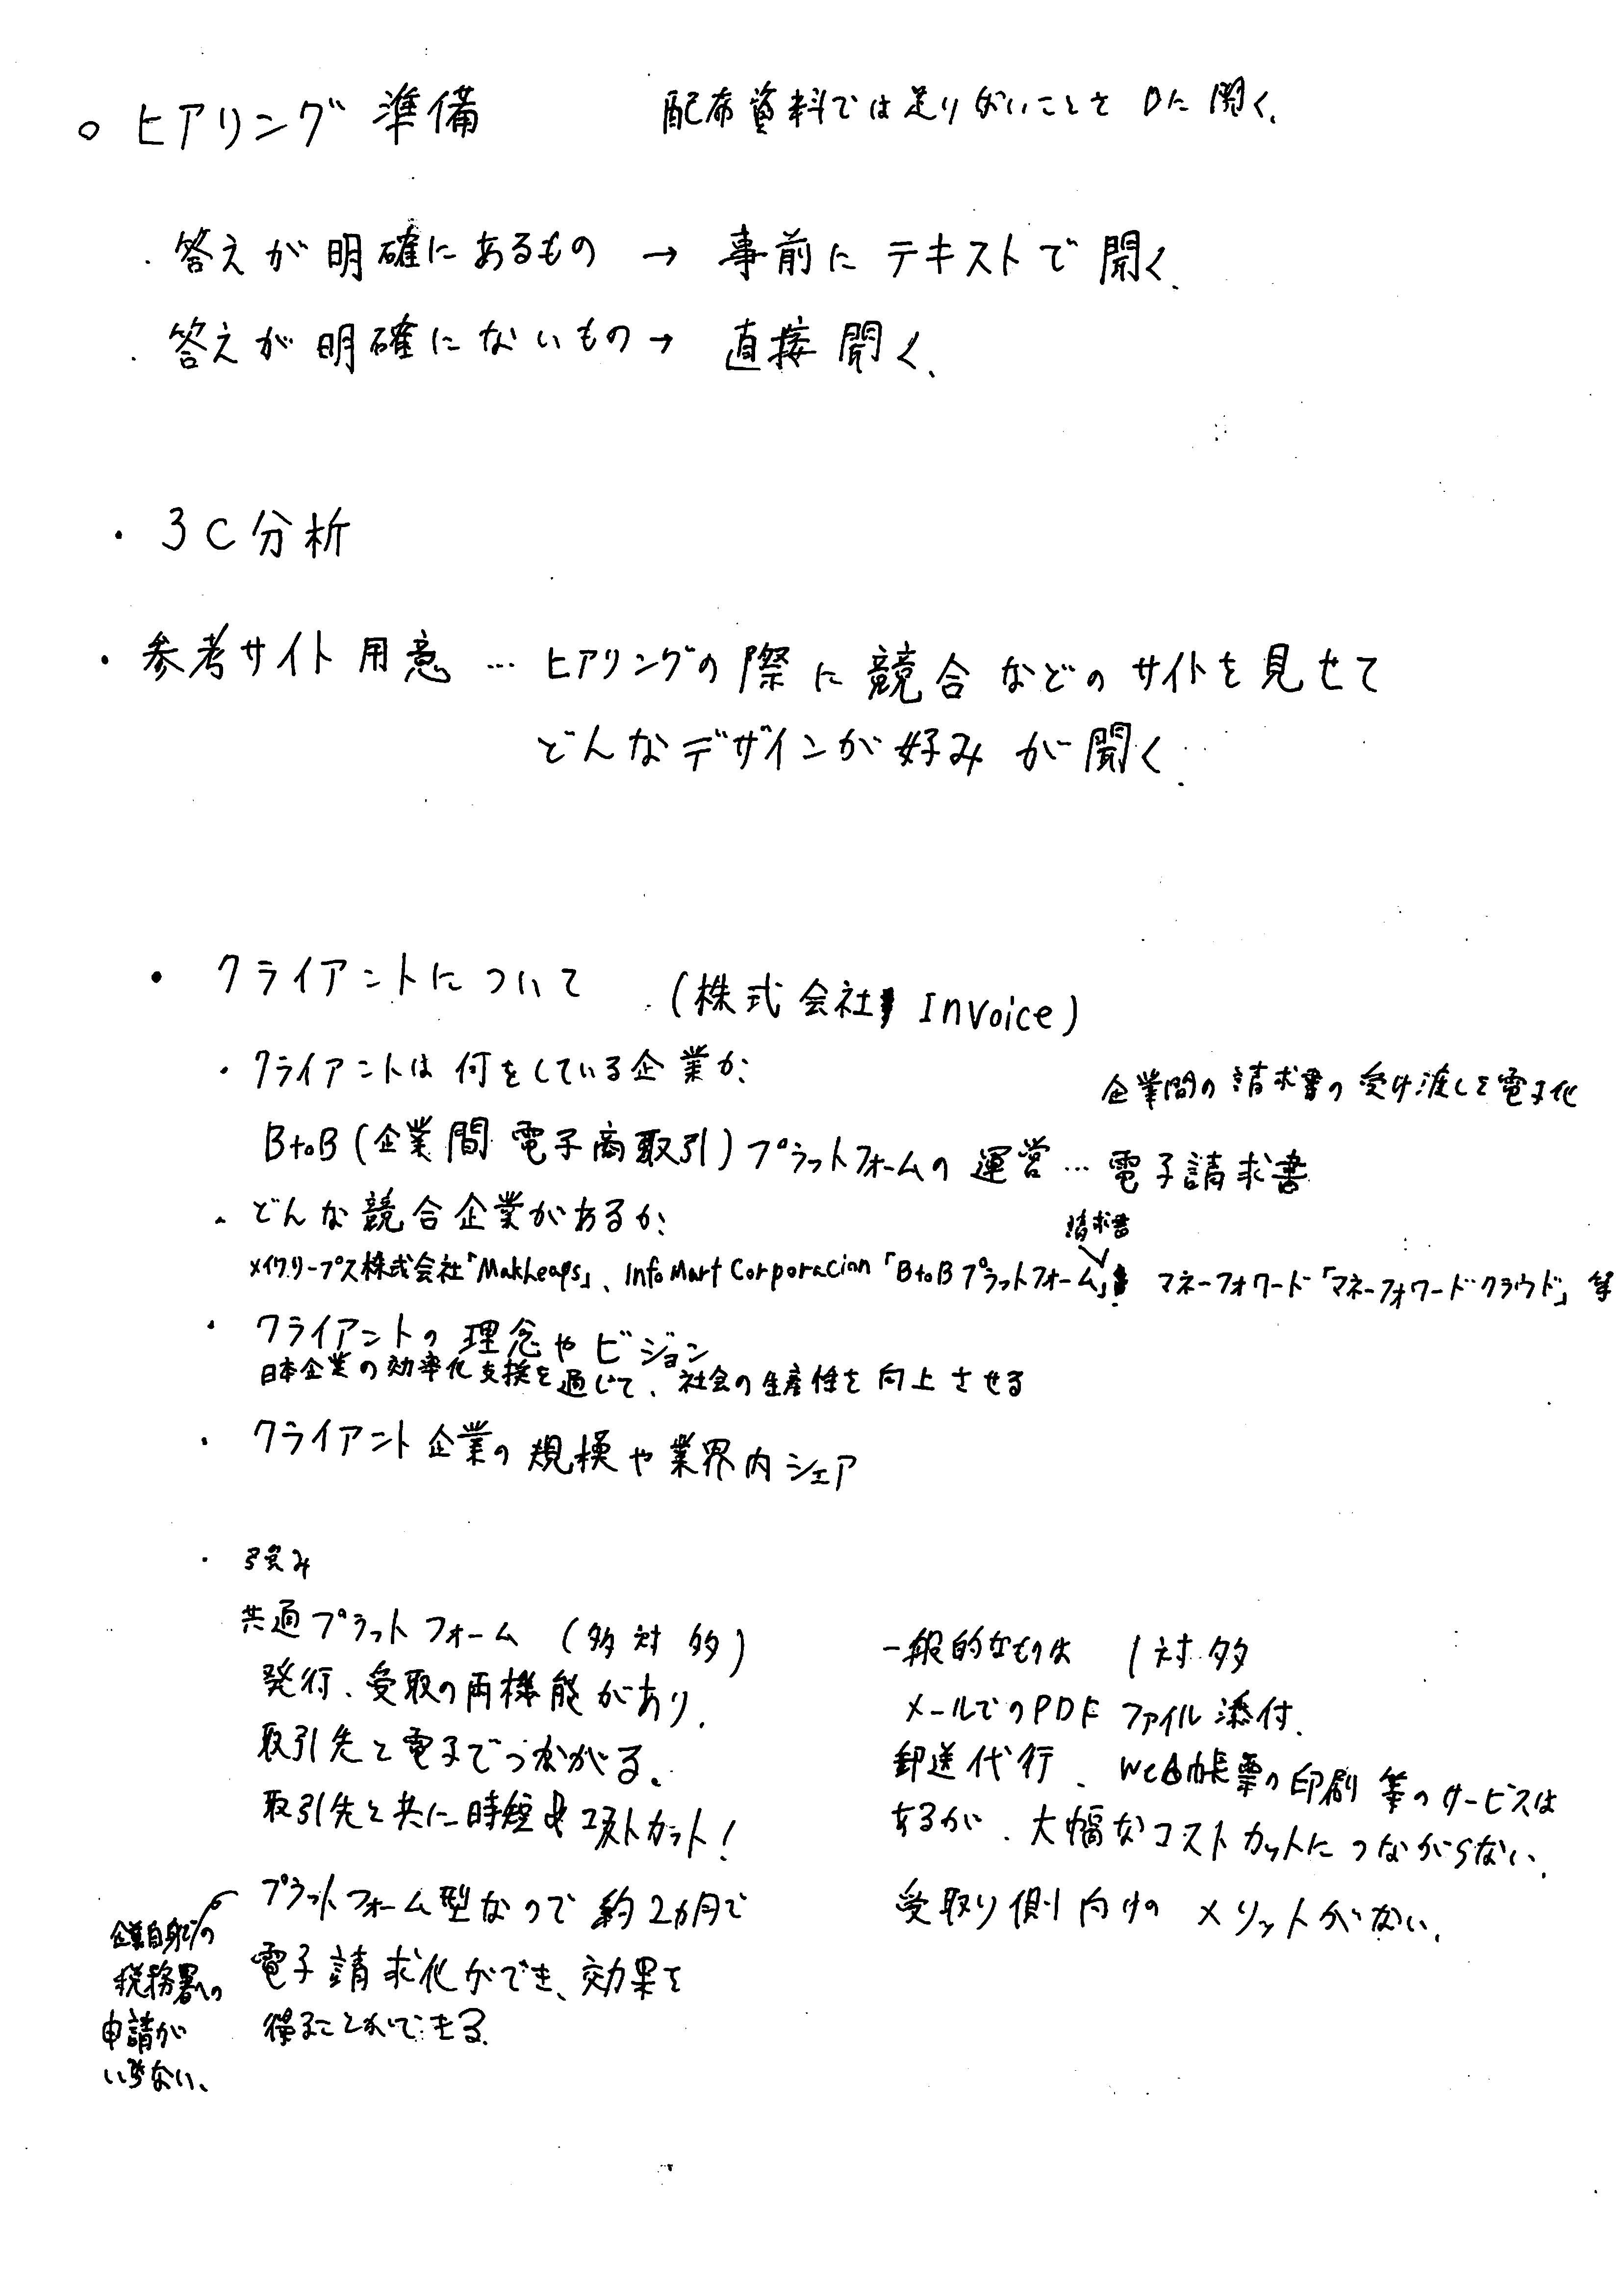 ○ ヒアリング準備
配布資料では足りないことを Dに聞く.
・答えが明確にあるもの → 事前に テキストで聞く.
・答えが明確にないもの → 直接聞く.
・3C分析
・参考サイト用意 … ヒアリングの際に競合などのサイトを見せて
どんなデザインが好みか聞く.
・クライアントについて (株式会社 Invoice)
・クライアントは何をしている企業か.
企業間の請求書の受け渡しを電子化
BtoB (企業間電子商取引) プラットフォームの運営 … 電子請求書
・どんな競合企業があるか.
請求書
メイクリープス株式会社「Makleaps」、Info Mart Corporacion「BtoBプラットフォーム」 マネーフォワード「マネーフォワードクラウド」等
・クライアントの理念やビジョン
日本企業の効率化支援を通じて、社会の生産性を向上させる
・クライアント企業の規模や業界内シェア
・強み
共通プラットフォーム (多対多)
発行、受取の両機能があり.
取引先と電子でつながる。
取引先と共に時短&コストカット!
プラットフォーム型なので約2ヵ月で
電子請求化ができ、効果を
得ることができる.
企業自身での
税務署への
申請が
いらない、
一般的なものは 1対多
メールでのPDFファイル添付.
郵送代行、Web帳票の印刷等のサービスは
あるが、大幅なコストカットにつながらない.
受取り側向けのメリットがない.